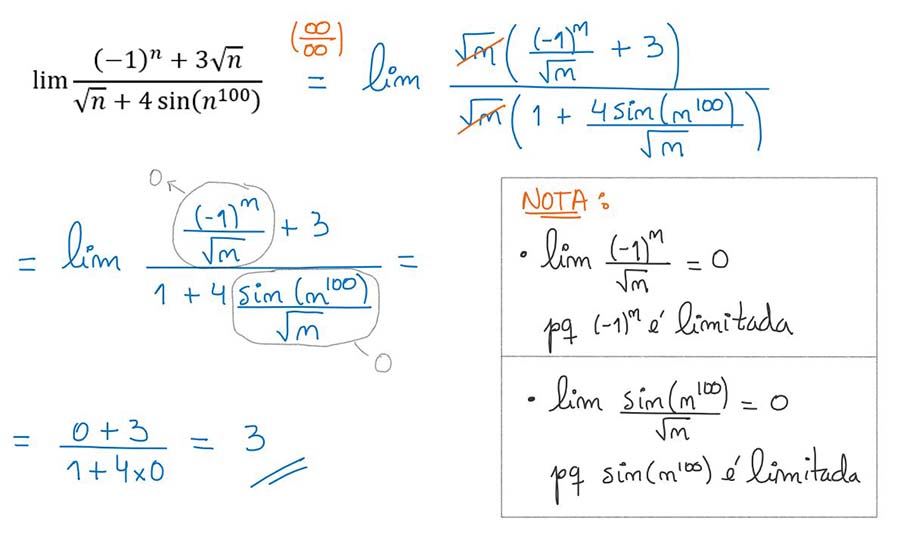 lim ((-1)ⁿ + 3√n) / (√n + 4 sin(n¹⁰⁰)) (∞/∞) = lim (√n((-1)ⁿ/√n + 3)) / (√n(1 + 4sin(n¹⁰⁰)/√n))
= lim ((-1)ⁿ/√n + 3) / (1 + 4 sin(n¹⁰⁰)/√n) =
0
0
= (0+3) / (1+4×0) = 3
NOTA:
• lim (-1)ⁿ/√n = 0
pq (-1)ⁿ é limitada
• lim sin(n¹⁰⁰)/√n = 0
pq sin(n¹⁰⁰) é limitada